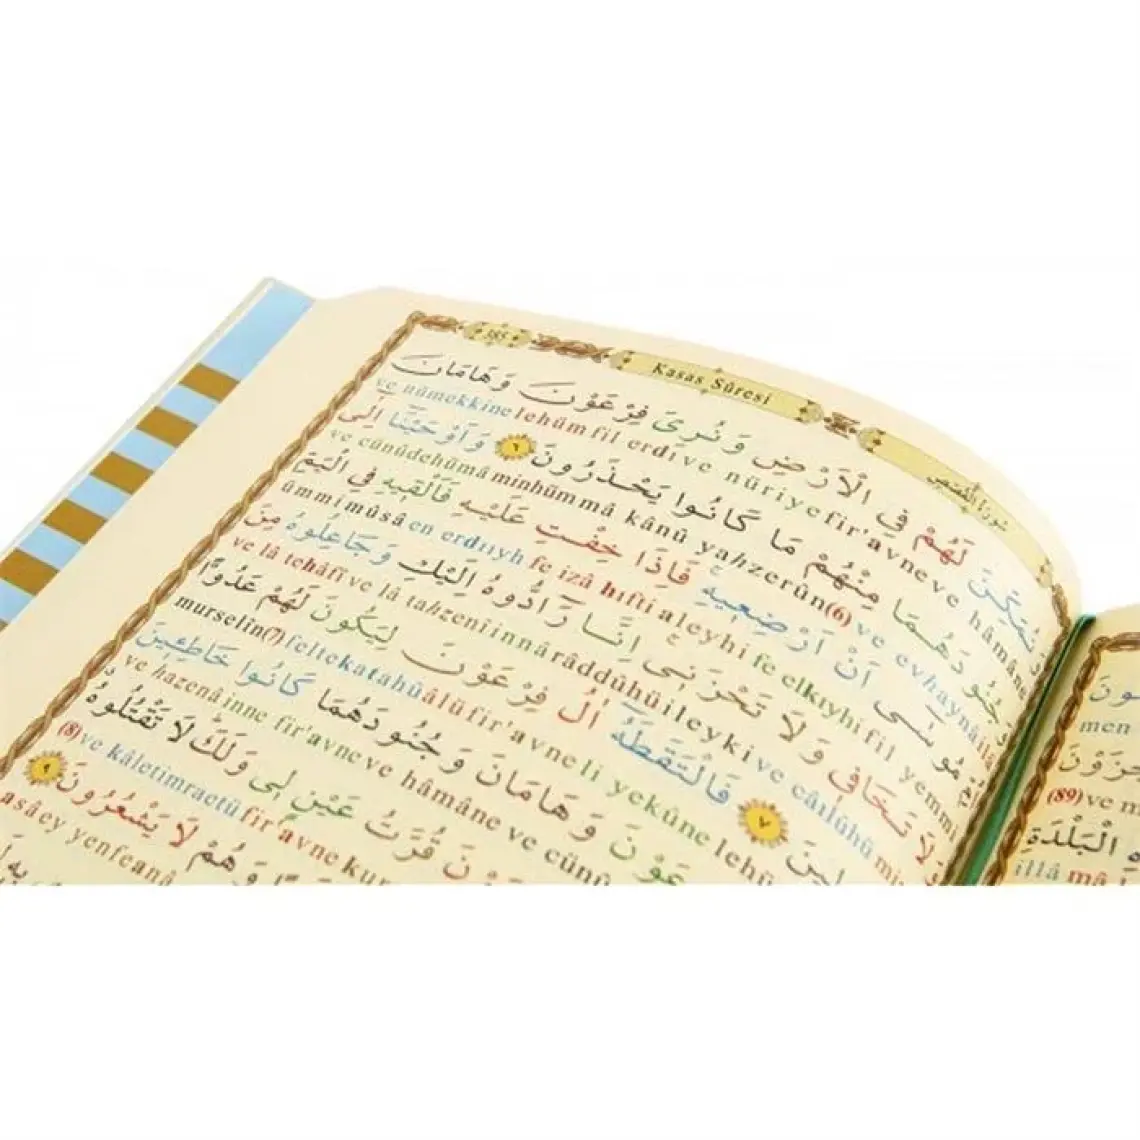 385
Kasas Sûresi
سورة القصص
وَنُمَكِّنَ لَهُمْ فِي الْاَرْضِ وَنُرِيَ فِرْعَوْنَ وَهَامَانَ
ve nümekkine lehüm fil erdı ve nüriye fir'avne ve hâmâne
وَجُنُودَهُمَا مِنْهُمْ مَا كَانُوا يَحْذَرُونَ ٦ وَاَوْحَيْنَٓا اِلٰٓى
ve cünûdehümâ minhüm mâ kânû yahzerûn(6) ve evhaynâ ilâ
اُمِّ مُوسٰٓى اَنْ اَرْضِعِيهِ فَاِذَا خِفْتِ عَلَيْهِ فَاَلْقِيهِ فِي الْيَمِّ
ümmi mûsâ en erdııyh fe izâ hıfti aleyhi fe elkıyhi fil yemmi
وَلَا تَخَافِي وَلَا تَحْزَنِي اِنَّا رَٓادُّوهُ اِلَيْكِ وَجَاعِلُوهُ مِنَ
ve lâ tehâfî ve lâ tahzenî innâ râddûhü ileyki ve câılûhü
فَالْتَقَطَهُٓ اٰلُ فِرْعَوْنَ لِيَكُونَ لَهُمْ عَدُوًّا ٧
murselîn(7) feltekatahû âlü fir'avne li yekûne lehü
وَهَامَانَ وَجُنُودَهُمَا كَانُوا خَاطِـِٔينَ
ve hazenâ inne fir'avne ve hâmâne ve cünû
قُرَّتُ عَيْنٍ لِي وَلَكَ لَا تَقْتُلُوهُ
(8)ve kâletimraetü fir'avne kur
وَهُمْ لَا يَشْعُرُونَ ٩
asâ ey yenfeanâ
men
(89) ve
الْبَلْدَةِ
illâ mâ